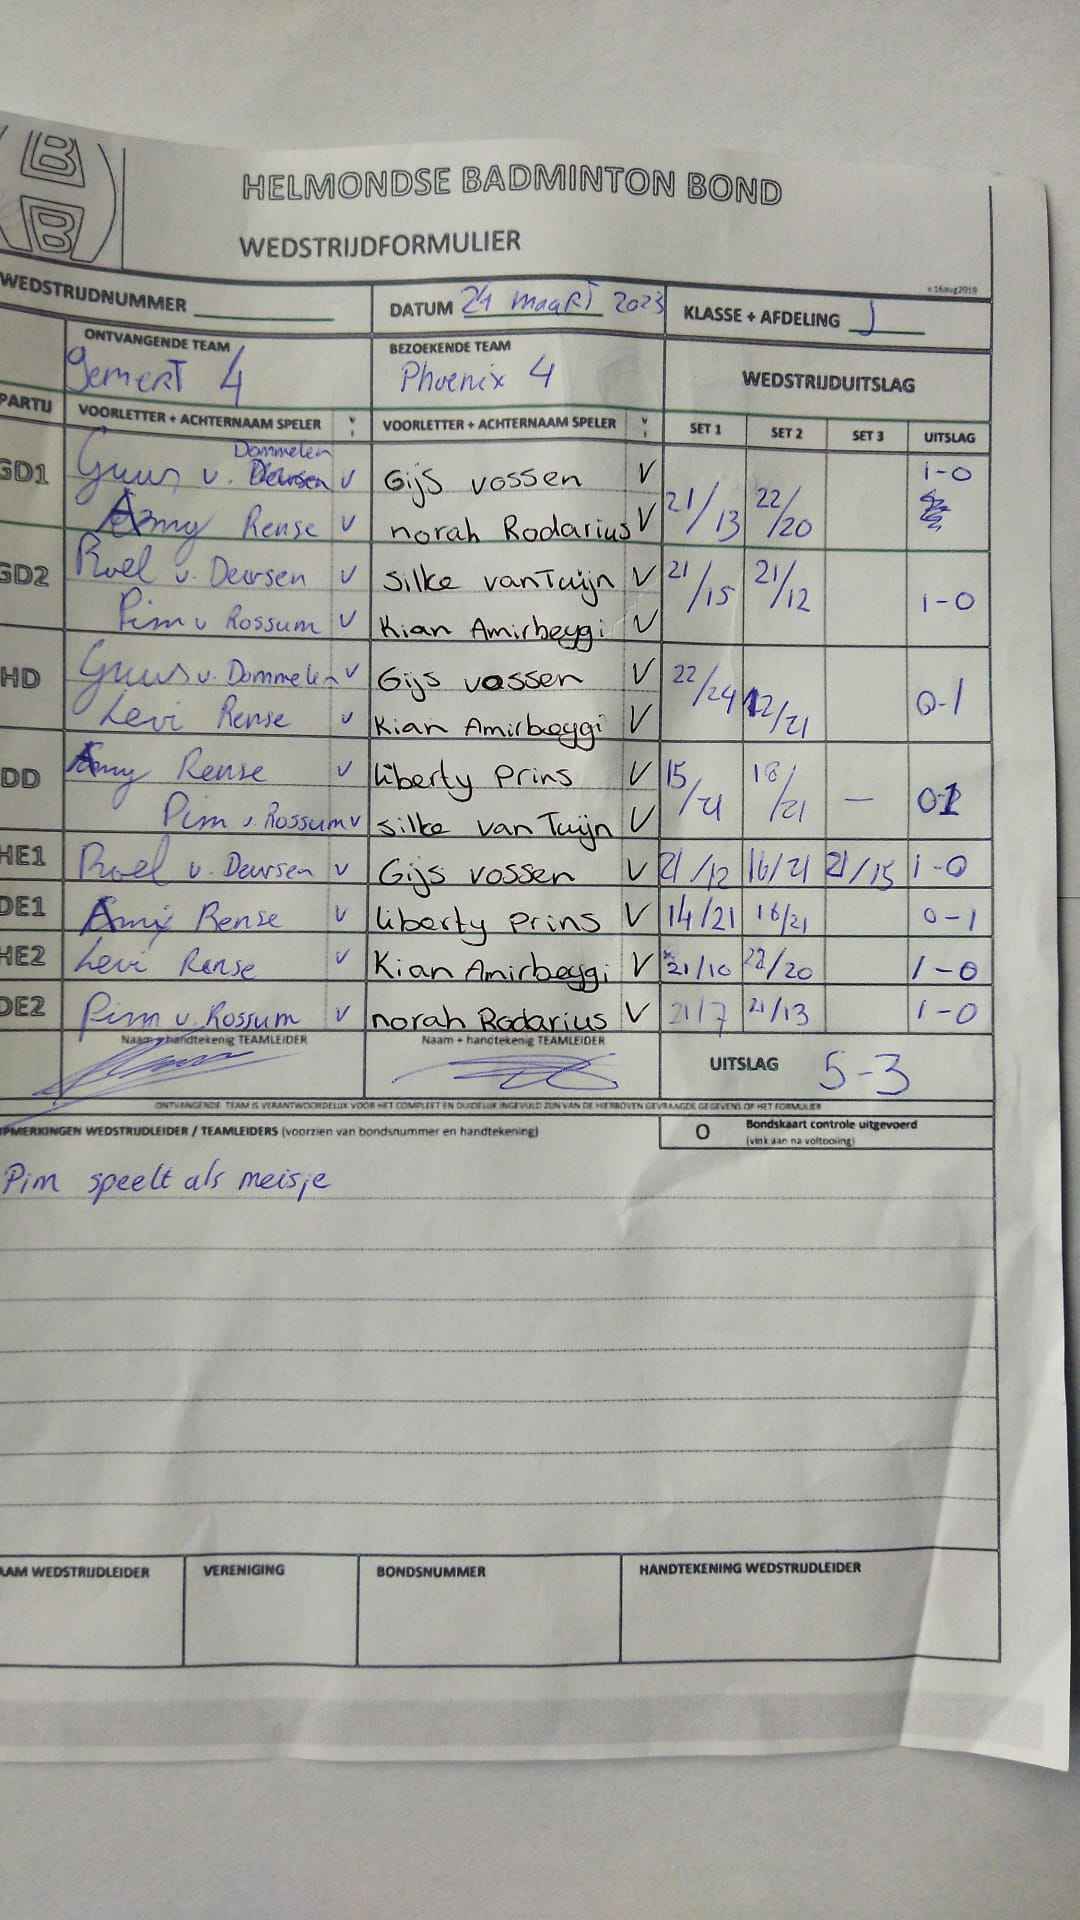 B
B
HELMONDSE BADMINTON BOND
WEDSTRIJDFORMULIER
v.16aug2019
WEDSTRIJDNUMMER DATUM 24 maart 2023 KLASSE + AFDELING J
ONTVANGENDE TEAM BEZOEKENDE TEAM
Gemert 4 Phoenix 4 WEDSTRIJDUITSLAG
PARTIJ VOORLETTER + ACHTERNAAM SPELER VOORLETTER + ACHTERNAAM SPELER SET 1 SET 2 SET 3 UITSLAG
Dommelen
GD1 Guus v. Deursen v Gijs vossen V 21/13 22/20 1-0
Amy Rense v norah Rodarius V
GD2 Roel v. Deursen v Silke van Tuijn V 21/15 21/12 1-0
Pim v Rossum v Kian Amirbeygi V
HD Guus v. Dommelen v Gijs vossen V 22/24 12/21 0-1
Levi Rense v Kian Amirbeygi V
DD Amy Rense v liberty prins V 15/21 18/21 — 0-1
Pim v. Rossum v Silke van Tuijn V
HE1 Roel v. Deursen v Gijs vossen V 21/12 16/21 21/15 1-0
DE1 Amy Rense v liberty prins V 14/21 18/21 0-1
HE2 Levi Rense v Kian Amirbeygi V 21/10 22/20 1-0
DE2 Pim v. Rossum v norah Rodarius V 21/7 21/13 1-0
Naam + handtekenig TEAMLEIDER Naam + handtekenig TEAMLEIDER
UITSLAG 5-3
ONTVANGENDE TEAM IS VERANTWOORDELIJK VOOR HET COMPLEET EN DUIDELIJK INGEVULD ZIJN VAN DE HIERBOVEN GEVRAAGDE GEGEVENS OP HET FORMULIER
PMERKINGEN WEDSTRIJDLEIDER / TEAMLEIDERS (voorzien van bondsnummer en handtekening) O Bondskaart controle uitgevoerd
(vink aan na voltooiing)
Pim speelt als meisje
AAM WEDSTRIJDLEIDER VERENIGING BONDSNUMMER HANDTEKENING WEDSTRIJDLEIDER